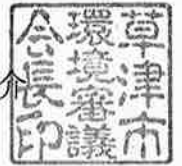 草津市
環境審議
会長印
介